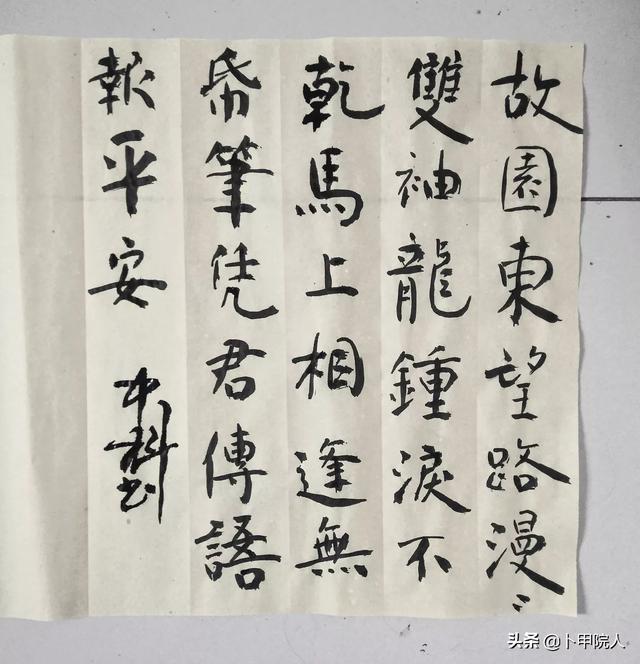 故園東望路漫〻
雙袖龍鍾淚不
乾馬上相逢無
帋筆凭君傳語
報平安
中科书
头条 @卜甲院人